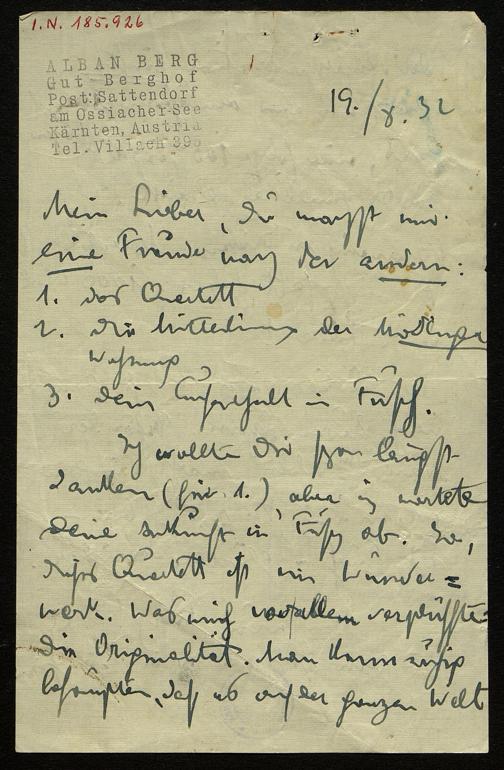 I.N. 185.926
ALBAN BERG
Gut Berghof
Post: Sattendorf
am Ossiacher-See
Kärnten, Austria
Tel. Villach 395
19./8. 32
Mein Lieber, Du machst mir
eine Freude nach der andern:
1. das Quartett
2. die Mitteilung der Mödlinger
Wohnung
3. Dein Aufenthalt in Fusch.
Ich wollte Dir schon längst
danken (für 1.), aber ich wartete
Deine Ankunft in Fusch ab. Ja,
dieses Quartett ist ein Wunder=
werk. Was mich vor allem verblüffte:
die Originalität. Man kann ruhig
behaupten, daß es auf der ganzen Welt